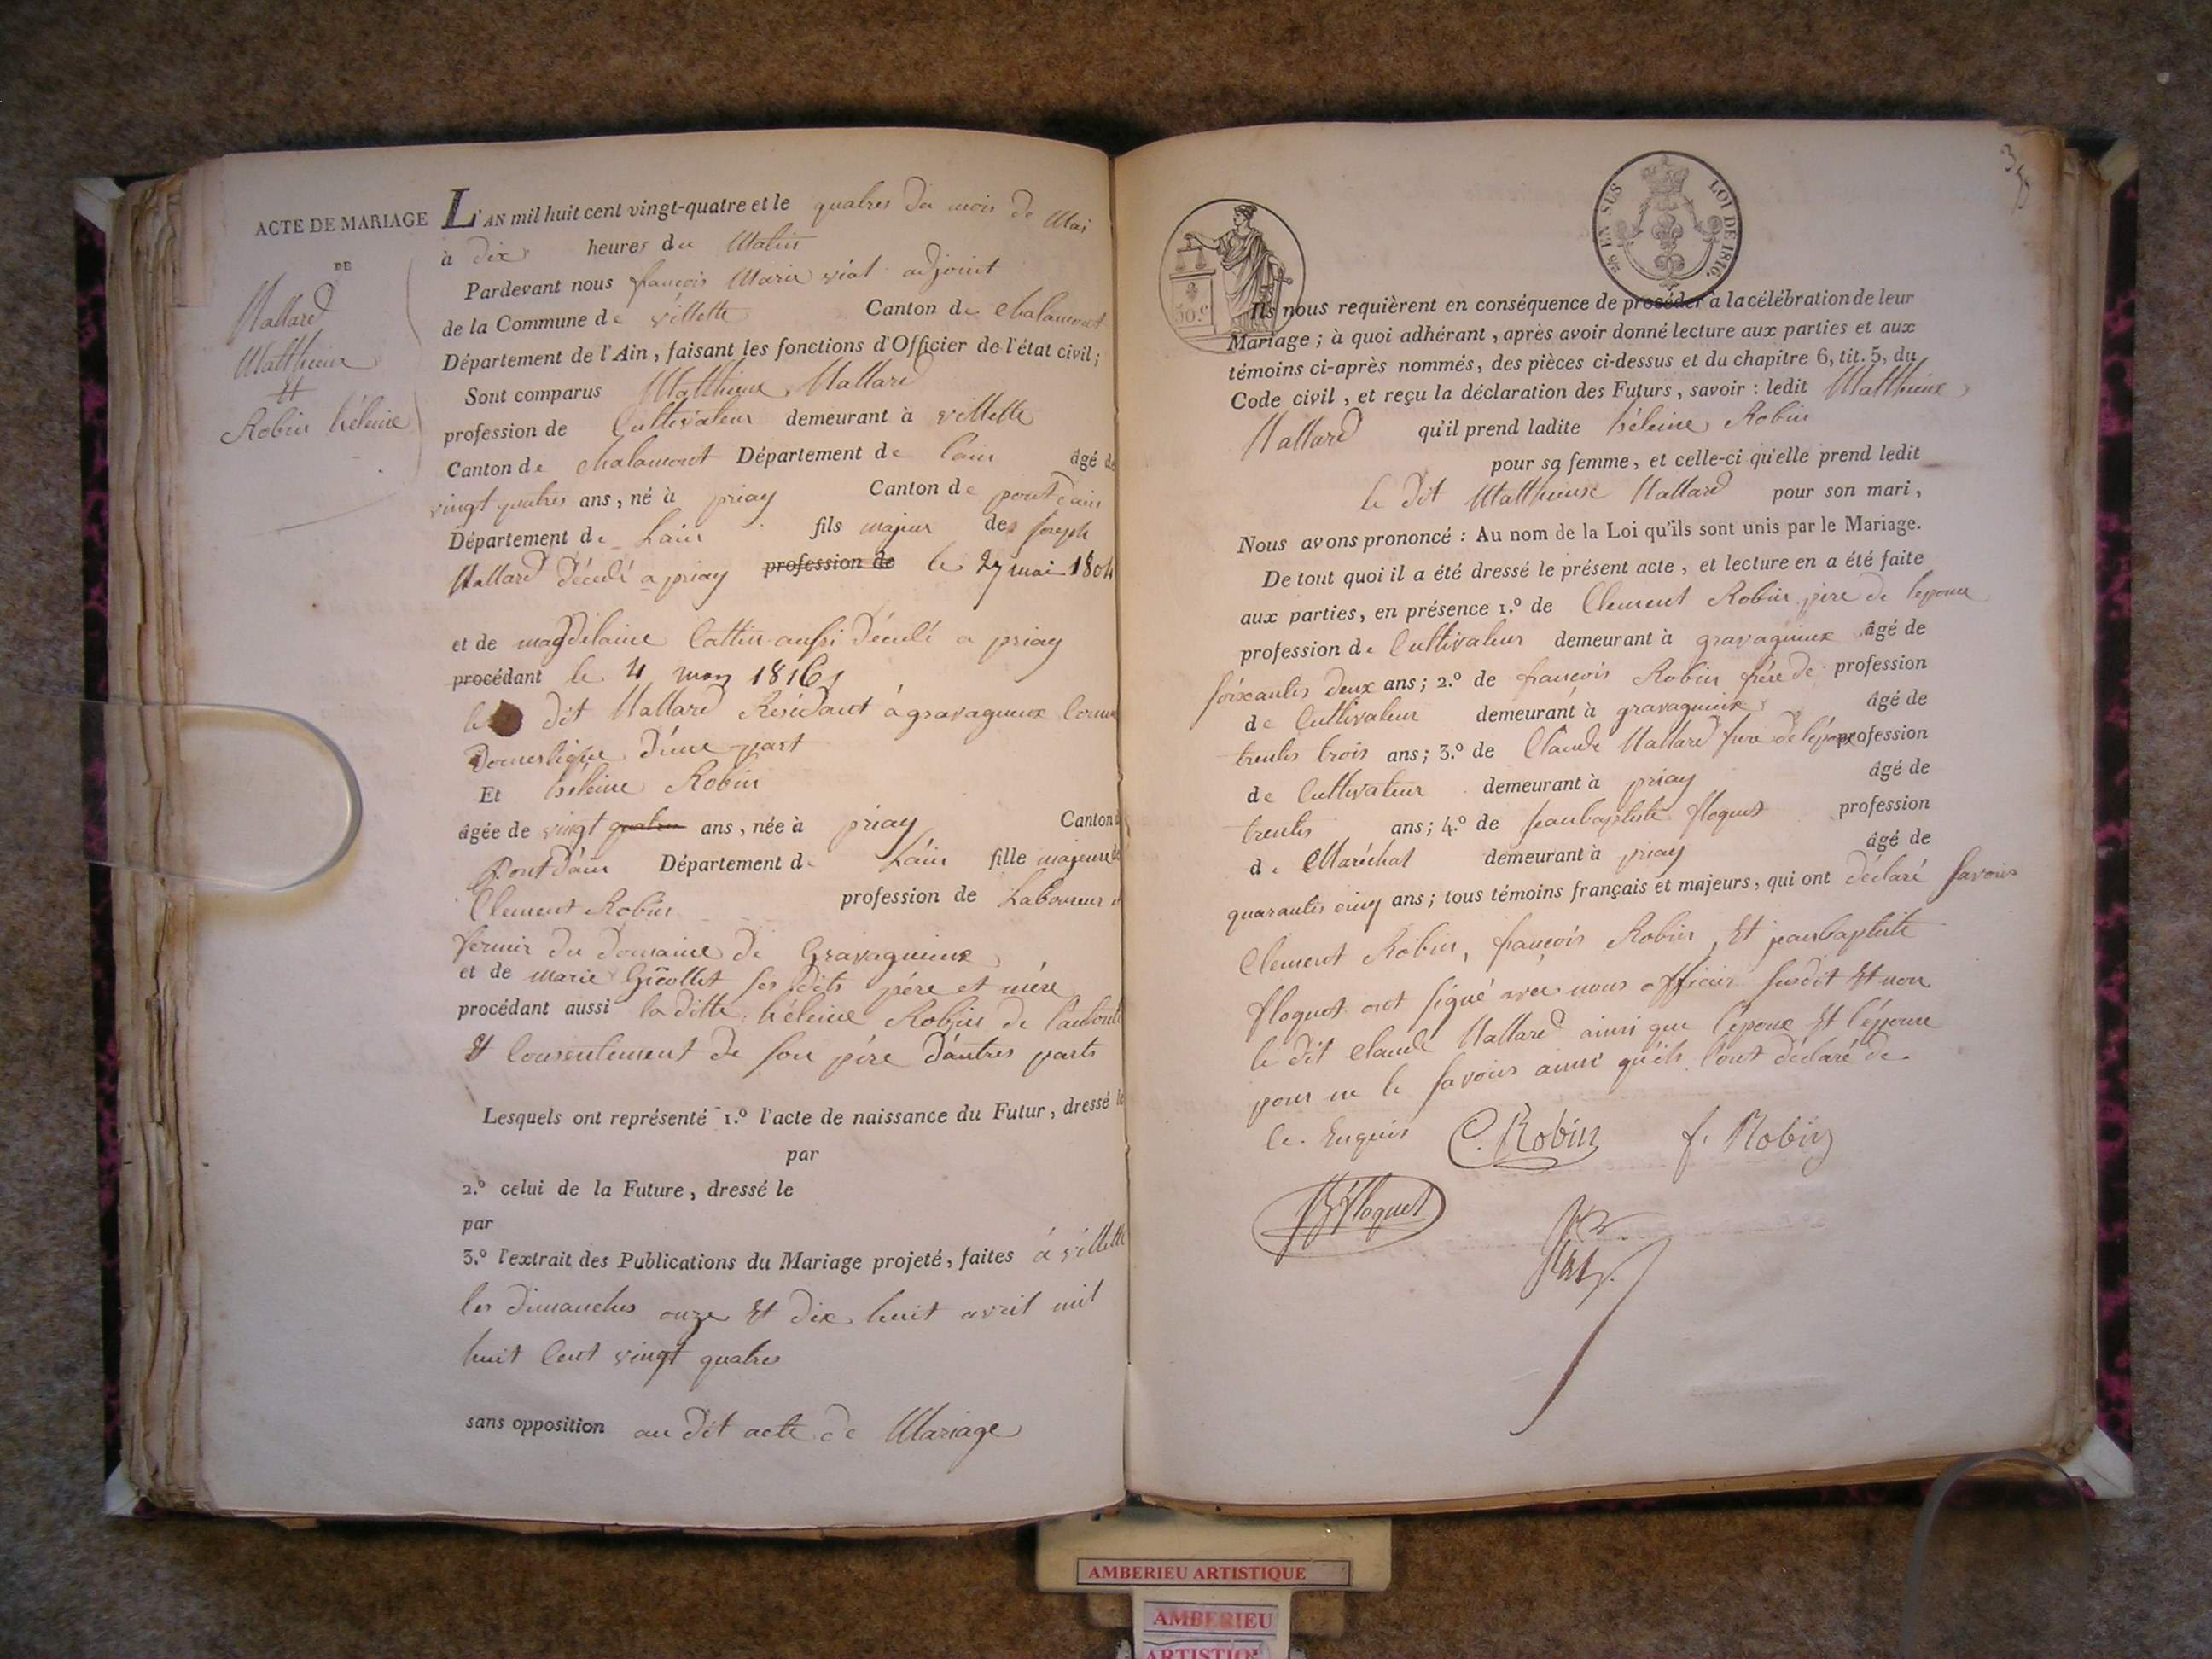 ACTE DE MARIAGE
DE
Mallard
Matthieux
Et
Robin héleine
L'AN mil huit cent vingt-quatre et le quatres du mois de Mai
à dix heures du Matin
Pardevant nous françois Marie viat adjoint
de la Commune de villette Canton de Chalamont
Département de l'Ain, faisant les fonctions d'Officier de l'état civil;
Sont comparus Matthieux Mallard
profession de Cultivateur demeurant à villette
Canton de Chalamont Département de Lain âgé de
vingt quatres ans, né à priay Canton de pont dain
Département de Lain fils majeur des joseph
Mallard décédé a priay profession de le 27 mai 1804
et de magdelaine Cattin aussi décédé a priay
procédant le 4 mars 1816
le dit Mallard Résidant à gravagneux Comme
Domestique d'une part
Et héleine Robin
âgée de vingt quatres ans, née à priay Canton
Pont Dain Département de Láin fille majeure de
Clement Robin profession de Laboureur et
fermier du Domaine de Gravagneux
et de marie Gicollet ses dits père et mère
procédant aussi la ditte héleine Robin de l'autorité
Et Consentement de son père d'autres parts
Lesquels ont représenté 1.º l'acte de naissance du Futur, dressé le
par
2.º celui de la Future, dressé le
par
3.º l'extrait des Publications du Mariage projeté, faites à villette
les dimanches onze Et dix huit avril mil
huit Cent vingt quatres
sans opposition au dit acte de Mariage
EN SUS LOI DE 1816.
50.C
Ils nous requièrent en conséquence de procéder à la célébration de leur
Mariage; à quoi adhérant, après avoir donné lecture aux parties et aux
témoins ci-après nommés, des pièces ci-dessus et du chapitre 6, tit. 5, du
Code civil, et reçu la déclaration des Futurs, savoir: ledit Matthieux
Mallard qu'il prend ladite héleine Robin
pour sa femme, et celle-ci qu'elle prend ledit
le dit Matthieux Mallard pour son mari,
Nous avons prononcé: Au nom de la Loi qu'ils sont unis par le Mariage.
De tout quoi il a été dressé le présent acte, et lecture en a été faite
aux parties, en présence 1.º de Clement Robin père de lepouse
profession de Cultivateur demeurant à gravagneux âgé de
soixantes deux ans; 2.º de françois Robin frère de profession
de Cultivateur demeurant à gravagneux âgé de
trentes trois ans; 3.º de Claude Mallard frere de lépoux profession
de Cultivateur demeurant à priay âgé de
trentes ans; 4.º de jeanbaptiste floquet profession
de Maréchal demeurant à priay âgé de
quarantes cinq ans; tous témoins français et majeurs, qui ont déclaré savoir
Clement Robin, françois Robin, Et jeanbaptiste
floquet ont signé avec nous officier susdit Et non
le dit Claude Mallard ainsi que l'époux Et l'épouse
pour ne le savoir ainsi qu'ils l'ont déclaré de
ce Enquis C. Robin f. Robin
JB floquet
viat
AMBERIEU ARTISTIQUE
AMBERIEU
ARTISTIQUE